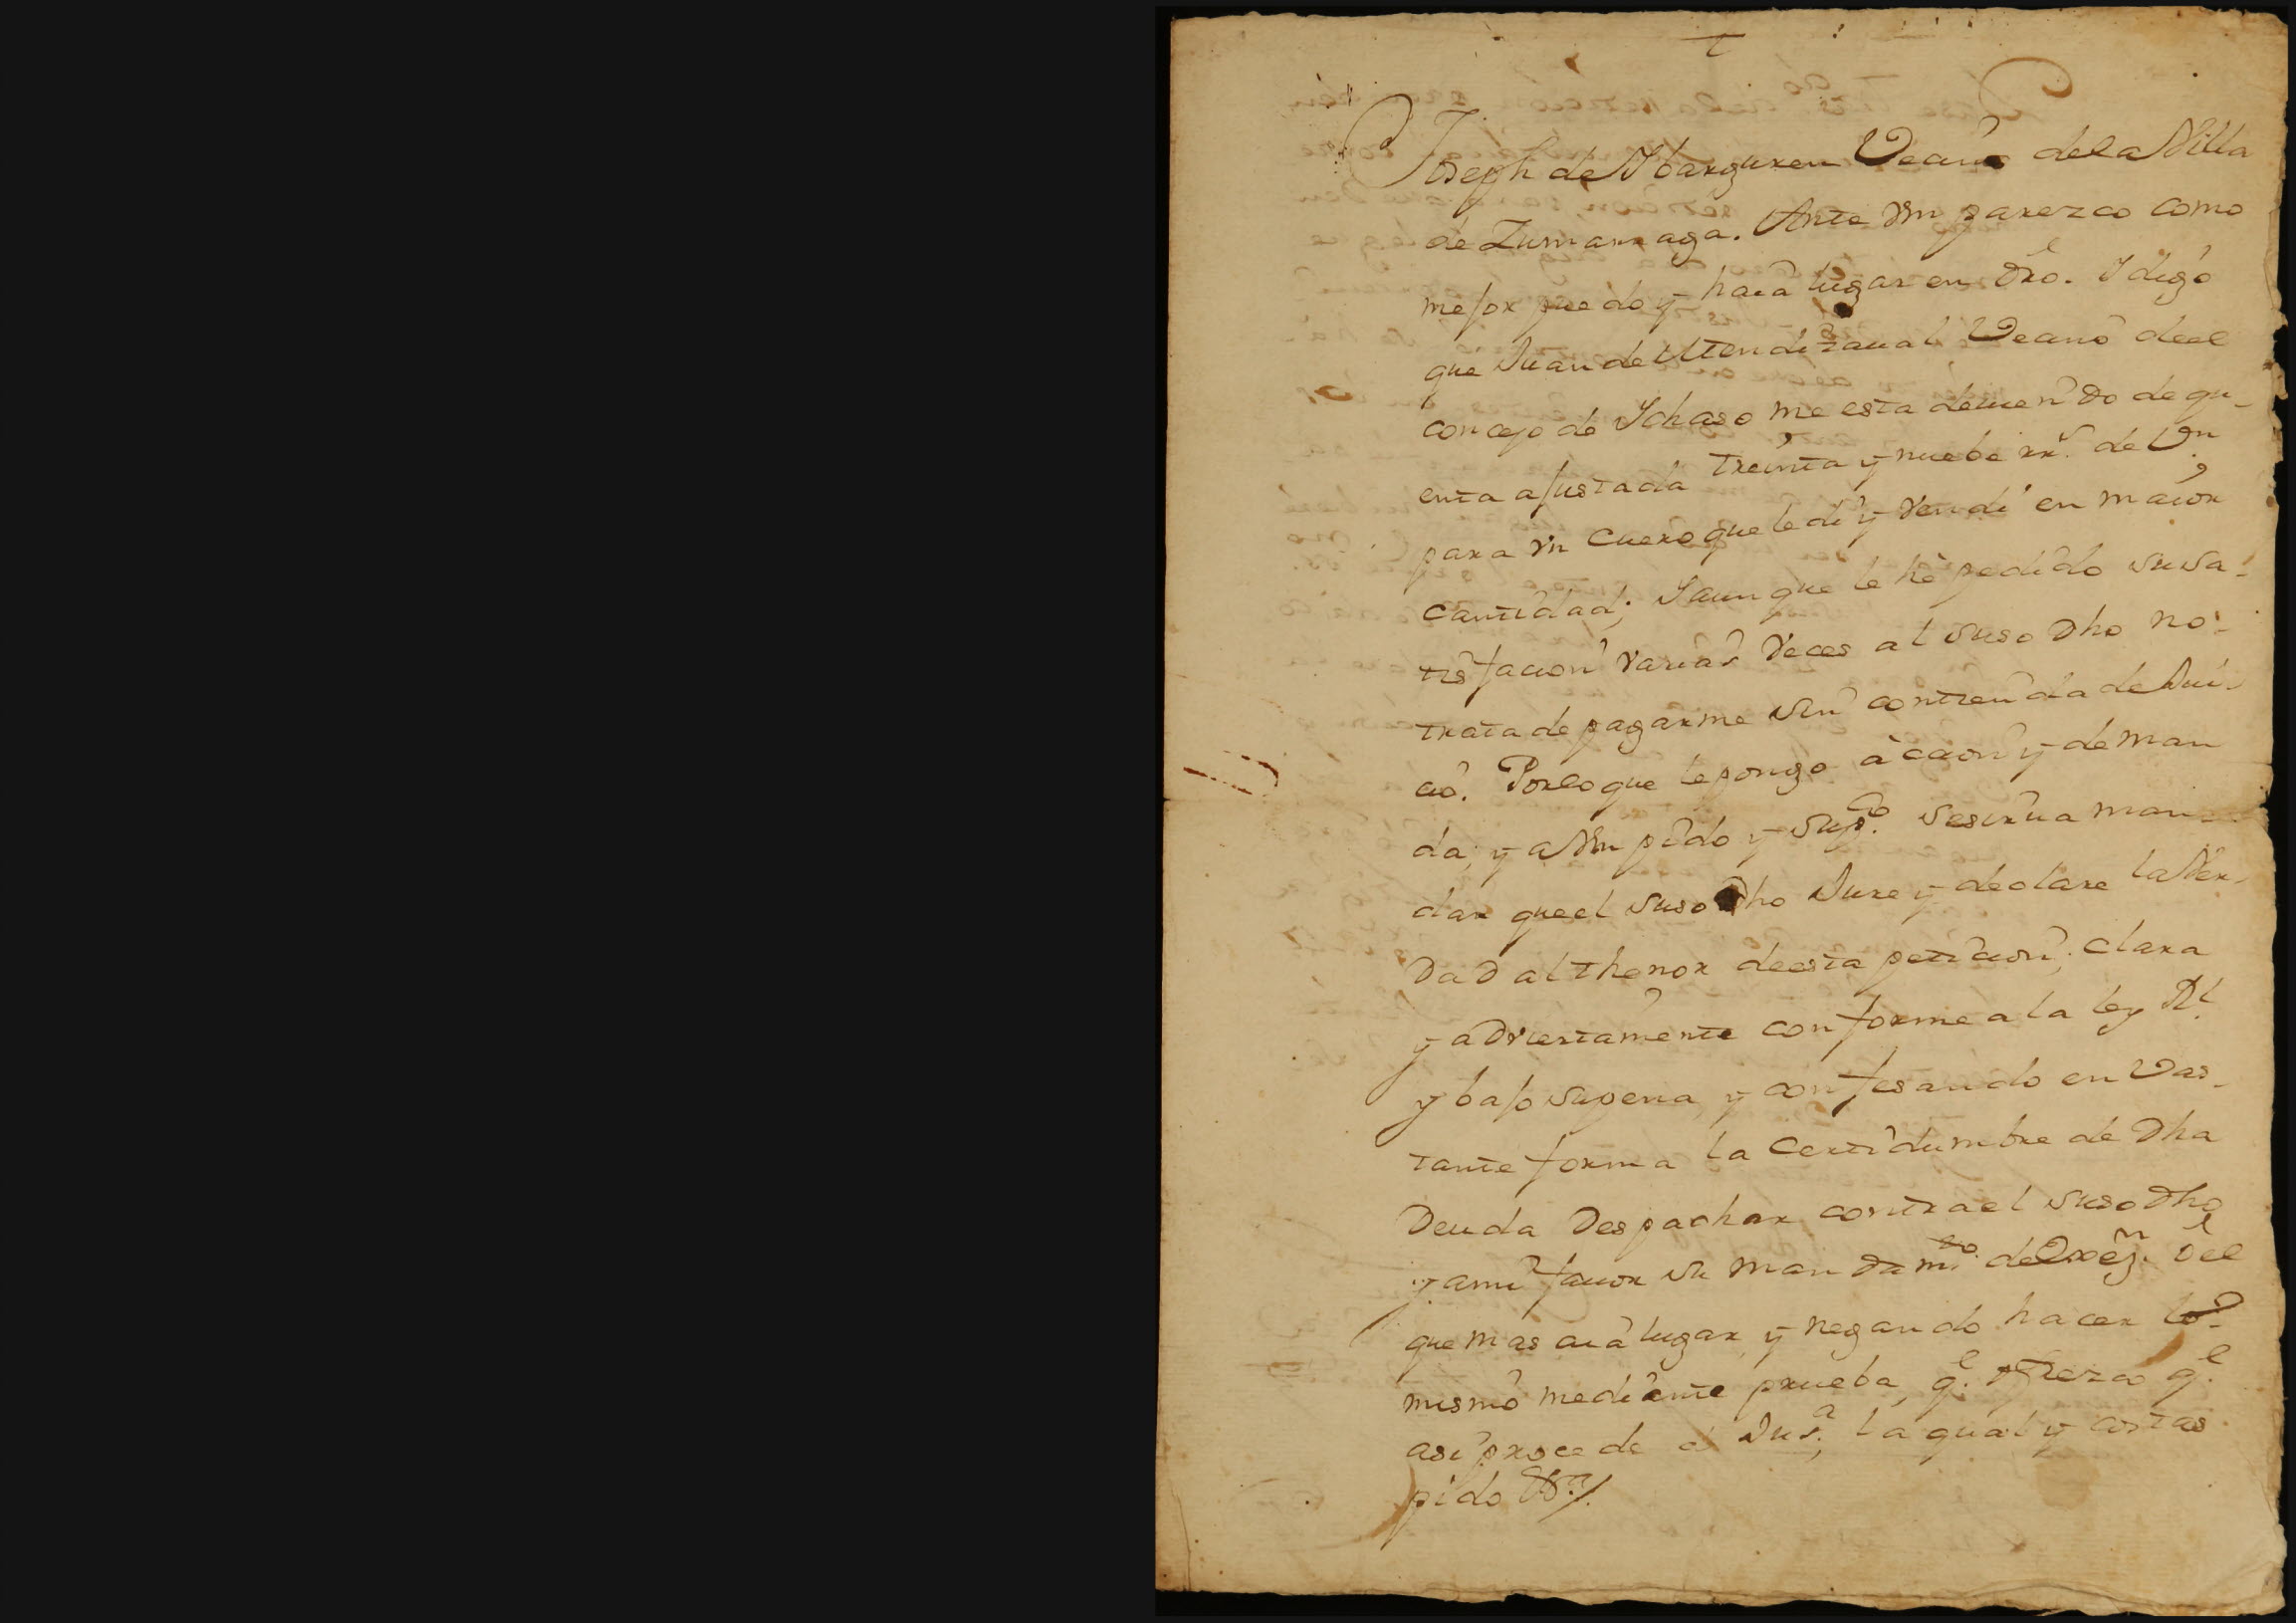 Joseph de Ybarguren Vecino de la Villa
de Zumarraga. Ante Vm parezco como
mejor puedo y haia lugar en dro. Y digo
que Juan de Mendizaual Vecino de el
concejo de Ychaso me esta deuiendo de qu-
enta ajustada treinta y nuebe rrs. de Vn
para vn cuero que le di y vendi en maior
cantidad; Y aunque le hè pedido su sa-
tisfacion varias veces al suso dho no
trata de pagarme sin contienda de Jui-
cio. Por lo que le pongo àccion y deman
da, y a Vm pido y supco. se sirua man-
dar que el suso dho Jure y declare la Ver-
dad al thenor de esta peticion, clara
y adviertamente conforme a la ley Rl.
y bajo su pena, y confesando en Vas-
tante forma la certidumbre de dha
Deuda Despachar contra el suso dho
y a mi fauor su mandamto. de Exôn. Del
que mas aià lugar, y negando hacer lo
mismo mediante prueba, qe. ofrezco qe.
asi procede de Jusa., la qual y costas
pido &a.